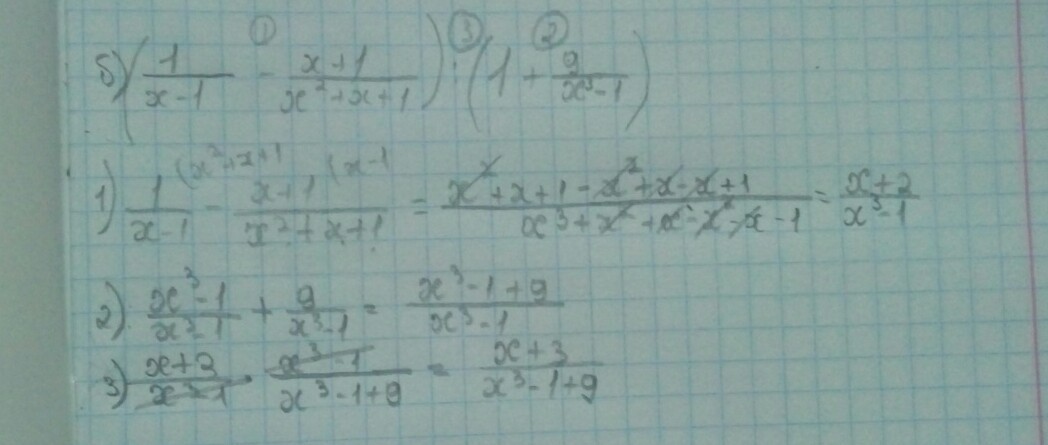 ① ③ ②
б) (1/(x-1) - (x+1)/(x²+x+1)) : (1 + 9/(x³-1))
1) 1/(x-1) (x²+x+1 - (x+1)/(x²+x+1) (x-1 = (x²+x+1-x²+x-x+1)/(x³+x²+x-x²-x-1) = (x+2)/(x³-1)
2) (x³-1)/(x³-1) + 9/(x³-1) = (x³-1+9)/(x³-1)
3) (x+2)/(x³-1) · (x³-1)/(x³-1+9) = (x+3)/(x³-1+9)